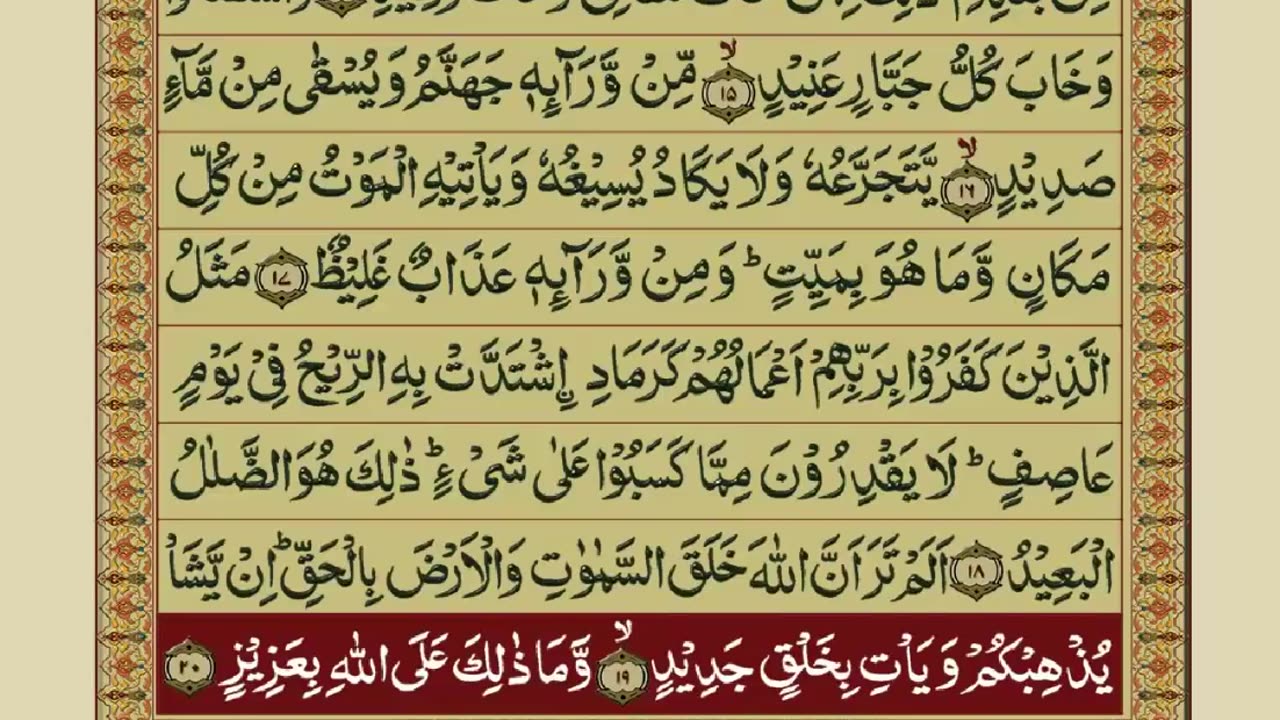 وَخَابَ كُلُّ جَبَّارٍ عَنِيْدٍ ۙ﴿۱۵﴾ مِّنْ وَّرَآئِهٖ جَهَنَّمُ وَيُسْقٰى مِنْ مَّآءٍ
صَدِيْدٍ ۙ﴿۱۶﴾ يَّتَجَرَّعُهٗ وَلَا يَكَادُ يُسِيْغُهٗ وَيَاْتِيْهِ الْمَوْتُ مِنْ كُلِّ
مَكَانٍ وَّمَا هُوَ بِمَيِّتٍ ؕ وَمِنْ وَّرَآئِهٖ عَذَابٌ غَلِيْظٌ ﴿۱۷﴾ مَثَلُ
الَّذِيْنَ كَفَرُوْا بِرَبِّهِمْ اَعْمَالُهُمْ كَرَمَادِ ِۨاشْتَدَّتْ بِهِ الرِّيْحُ فِيْ يَوْمٍ
عَاصِفٍ ؕ لَا يَقْدِرُوْنَ مِمَّا كَسَبُوْا عَلٰى شَىْءٍ ؕ ذٰلِكَ هُوَ الضَّلٰلُ
الْبَعِيْدُ ﴿۱۸﴾ اَلَمْ تَرَ اَنَّ اللّٰهَ خَلَقَ السَّمٰوٰتِ وَالْاَرْضَ بِالْحَقِّ ؕ اِنْ يَّشَاْ
يُذْهِبْكُمْ وَيَاْتِ بِخَلْقٍ جَدِيْدٍ ۙ﴿۱۹﴾ وَّمَا ذٰلِكَ عَلَى اللّٰهِ بِعَزِيْزٍ ﴿۲۰﴾